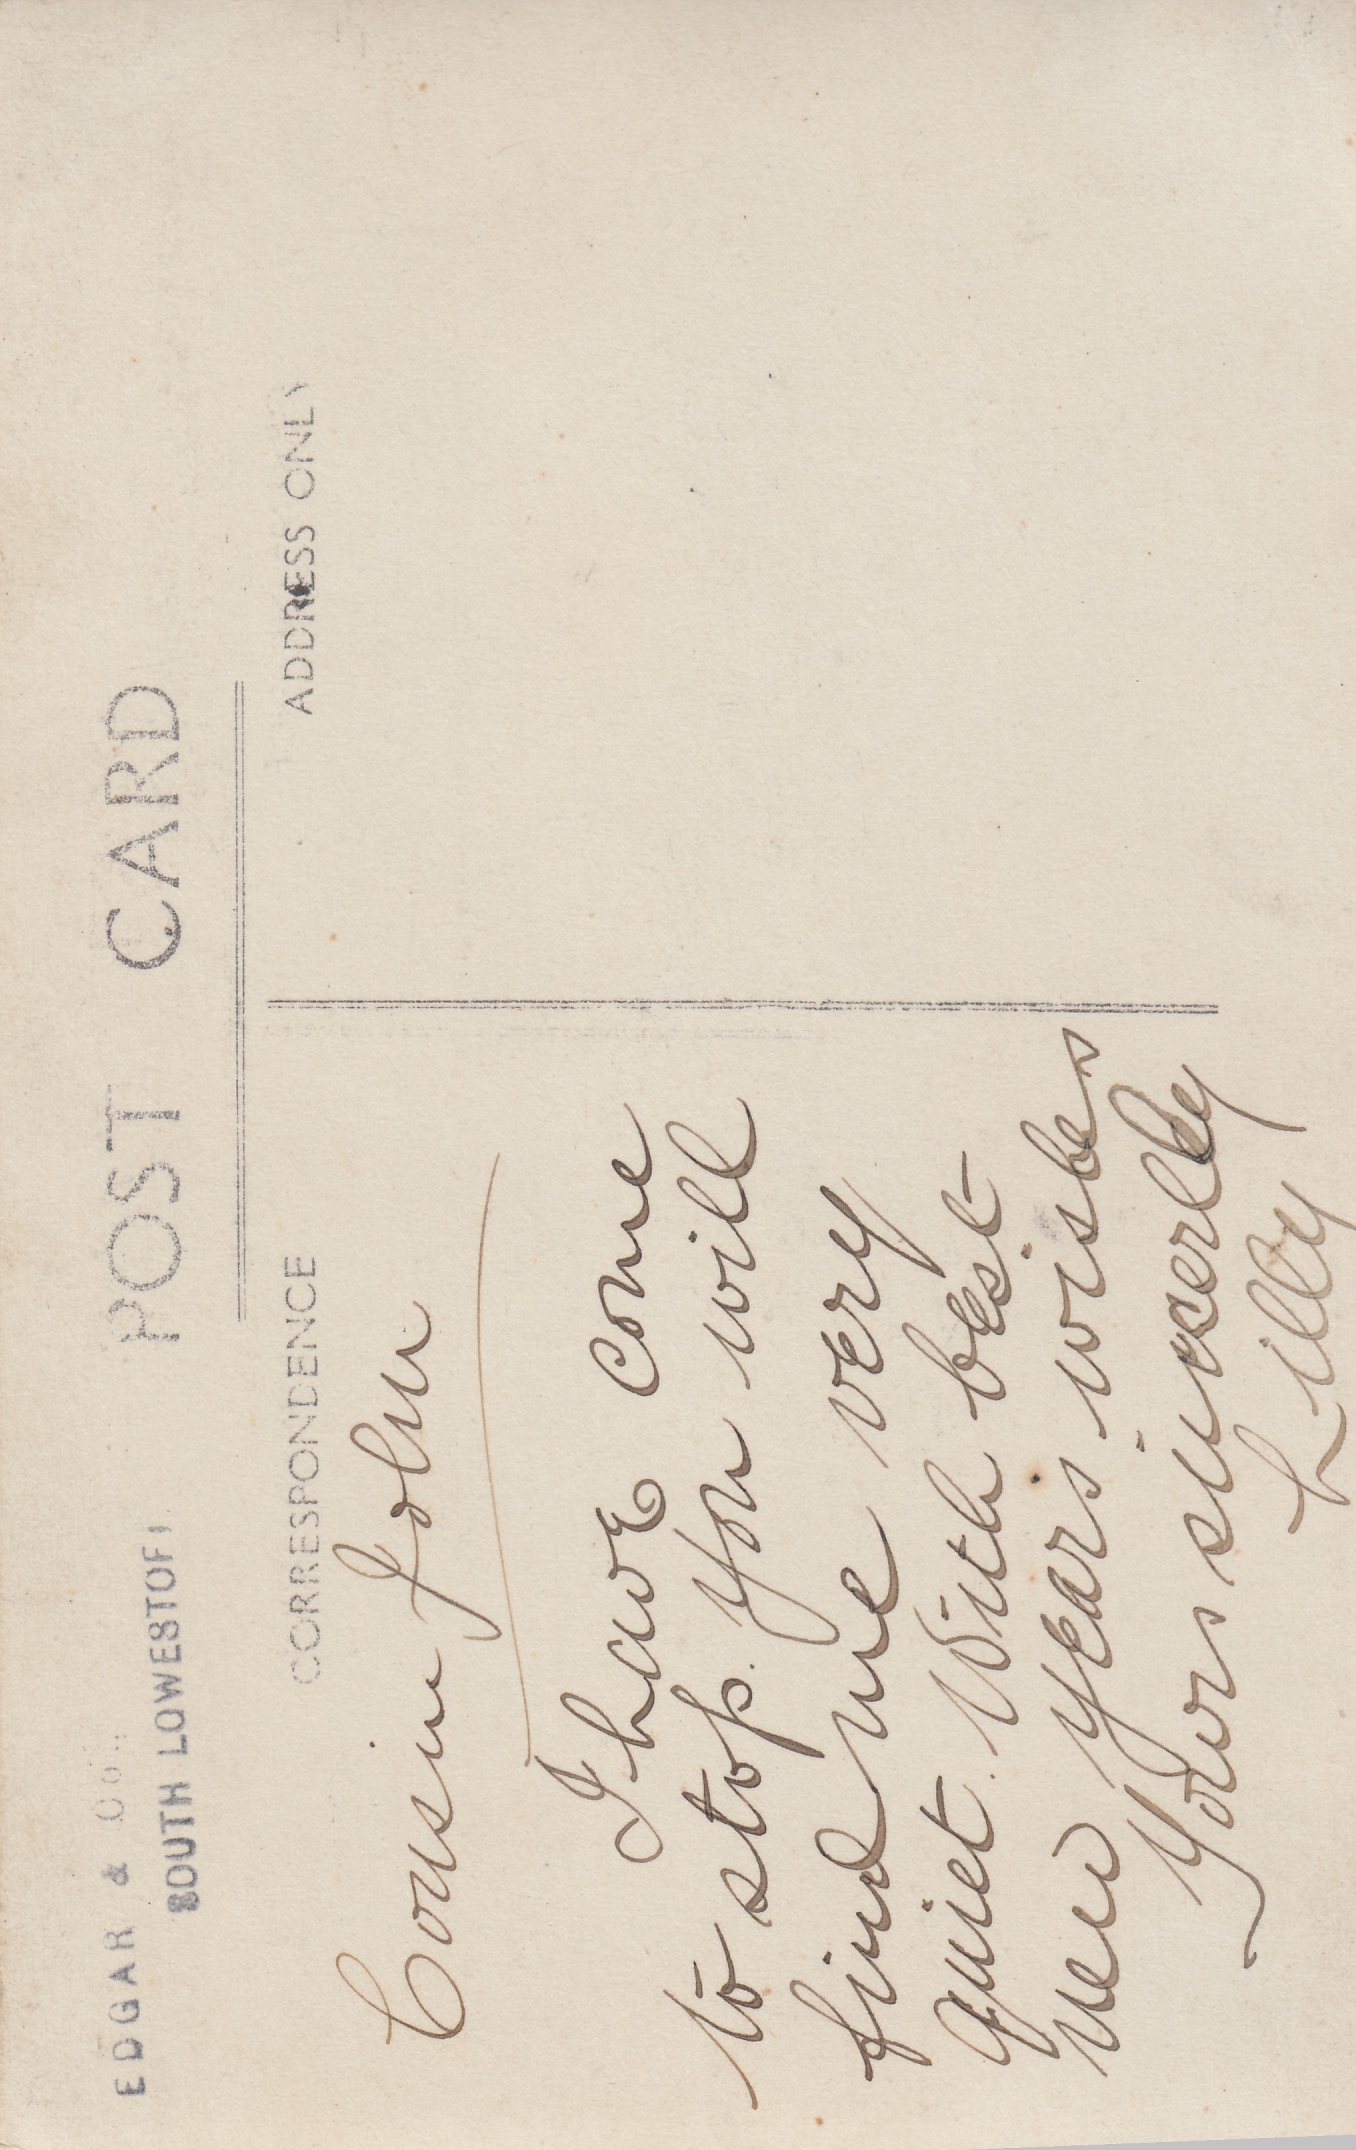 EDGAR & Co.
SOUTH LOWESTOFT
POST CARD
CORRESPONDENCE
ADDRESS ONLY
Cousin John
I have come
to stop. You will
find me very
quiet. With best
new years wishes
Yours sincerley
Lilly